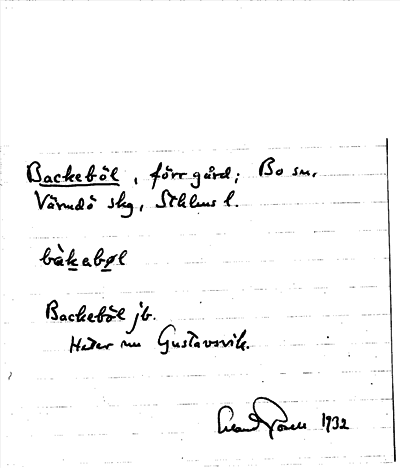 Backeböl, förr gård; Bo sn.
Värmdö skg, Sthlms l.
bàkabøl
Backeböl jb.
Heter nu Gustavsvik.
1932